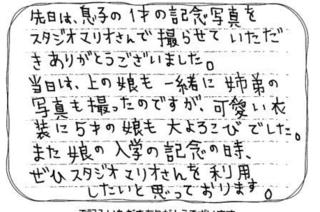 先日は、息子の1才の記念写真を
スタジオマリオさんで撮らせていただ
きありがとうございました。
当日は、上の娘も一緒に姉弟の
写真も撮ったのですが、可愛い衣
装に5才の娘も大よろこびでした。
また娘の入学の記念の時、
ぜひスタジオマリオさんを利用
したいと思っております。